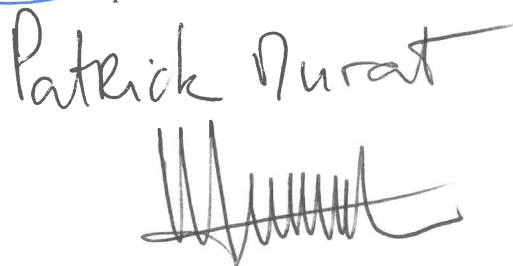 Patrick Murat